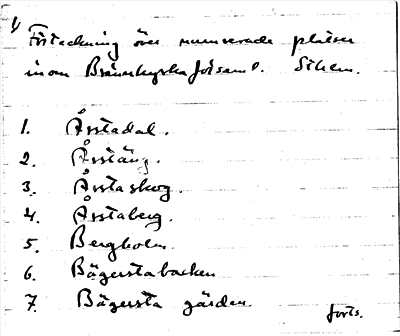 1/
Förteckning över numrerade platser
inom Brännkyrka församl. Sthlm.
1. Årstadal.
2. Årstäng.
3. Årstaskog.
4. Årstaberg.
5. Bergholm
6. Bägerstabacken
7. Bägersta gärden.
forts.